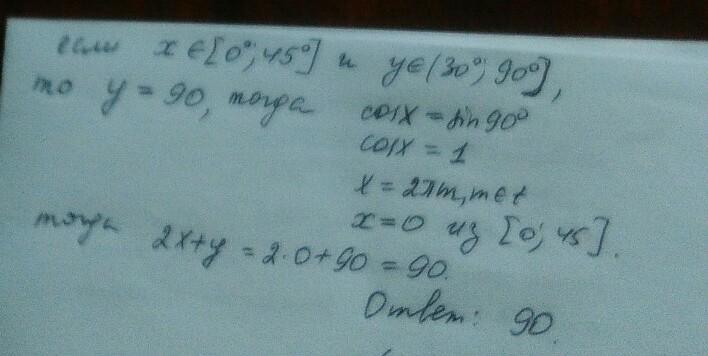 если x ∈ [0°; 45°] и y ∈ (30°; 90°],
то y = 90, тогда cos x = sin 90°
cos x = 1
x = 2πm, m ∈ t
x = 0 из [0°; 45].
тогда 2x + y = 2·0 + 90 = 90.
Ответ: 90.